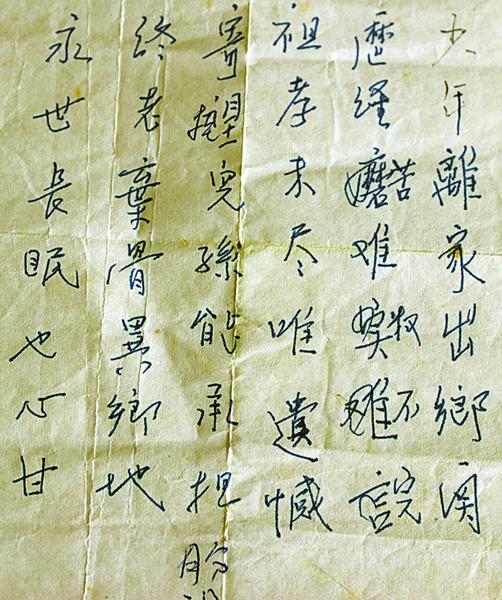 少年離家出鄉関
歷経磨苦难数不
祖孝未尽唯遺憾
寄望兒孫能承担
終老棄骨異鄉地
永世長眠也心甘